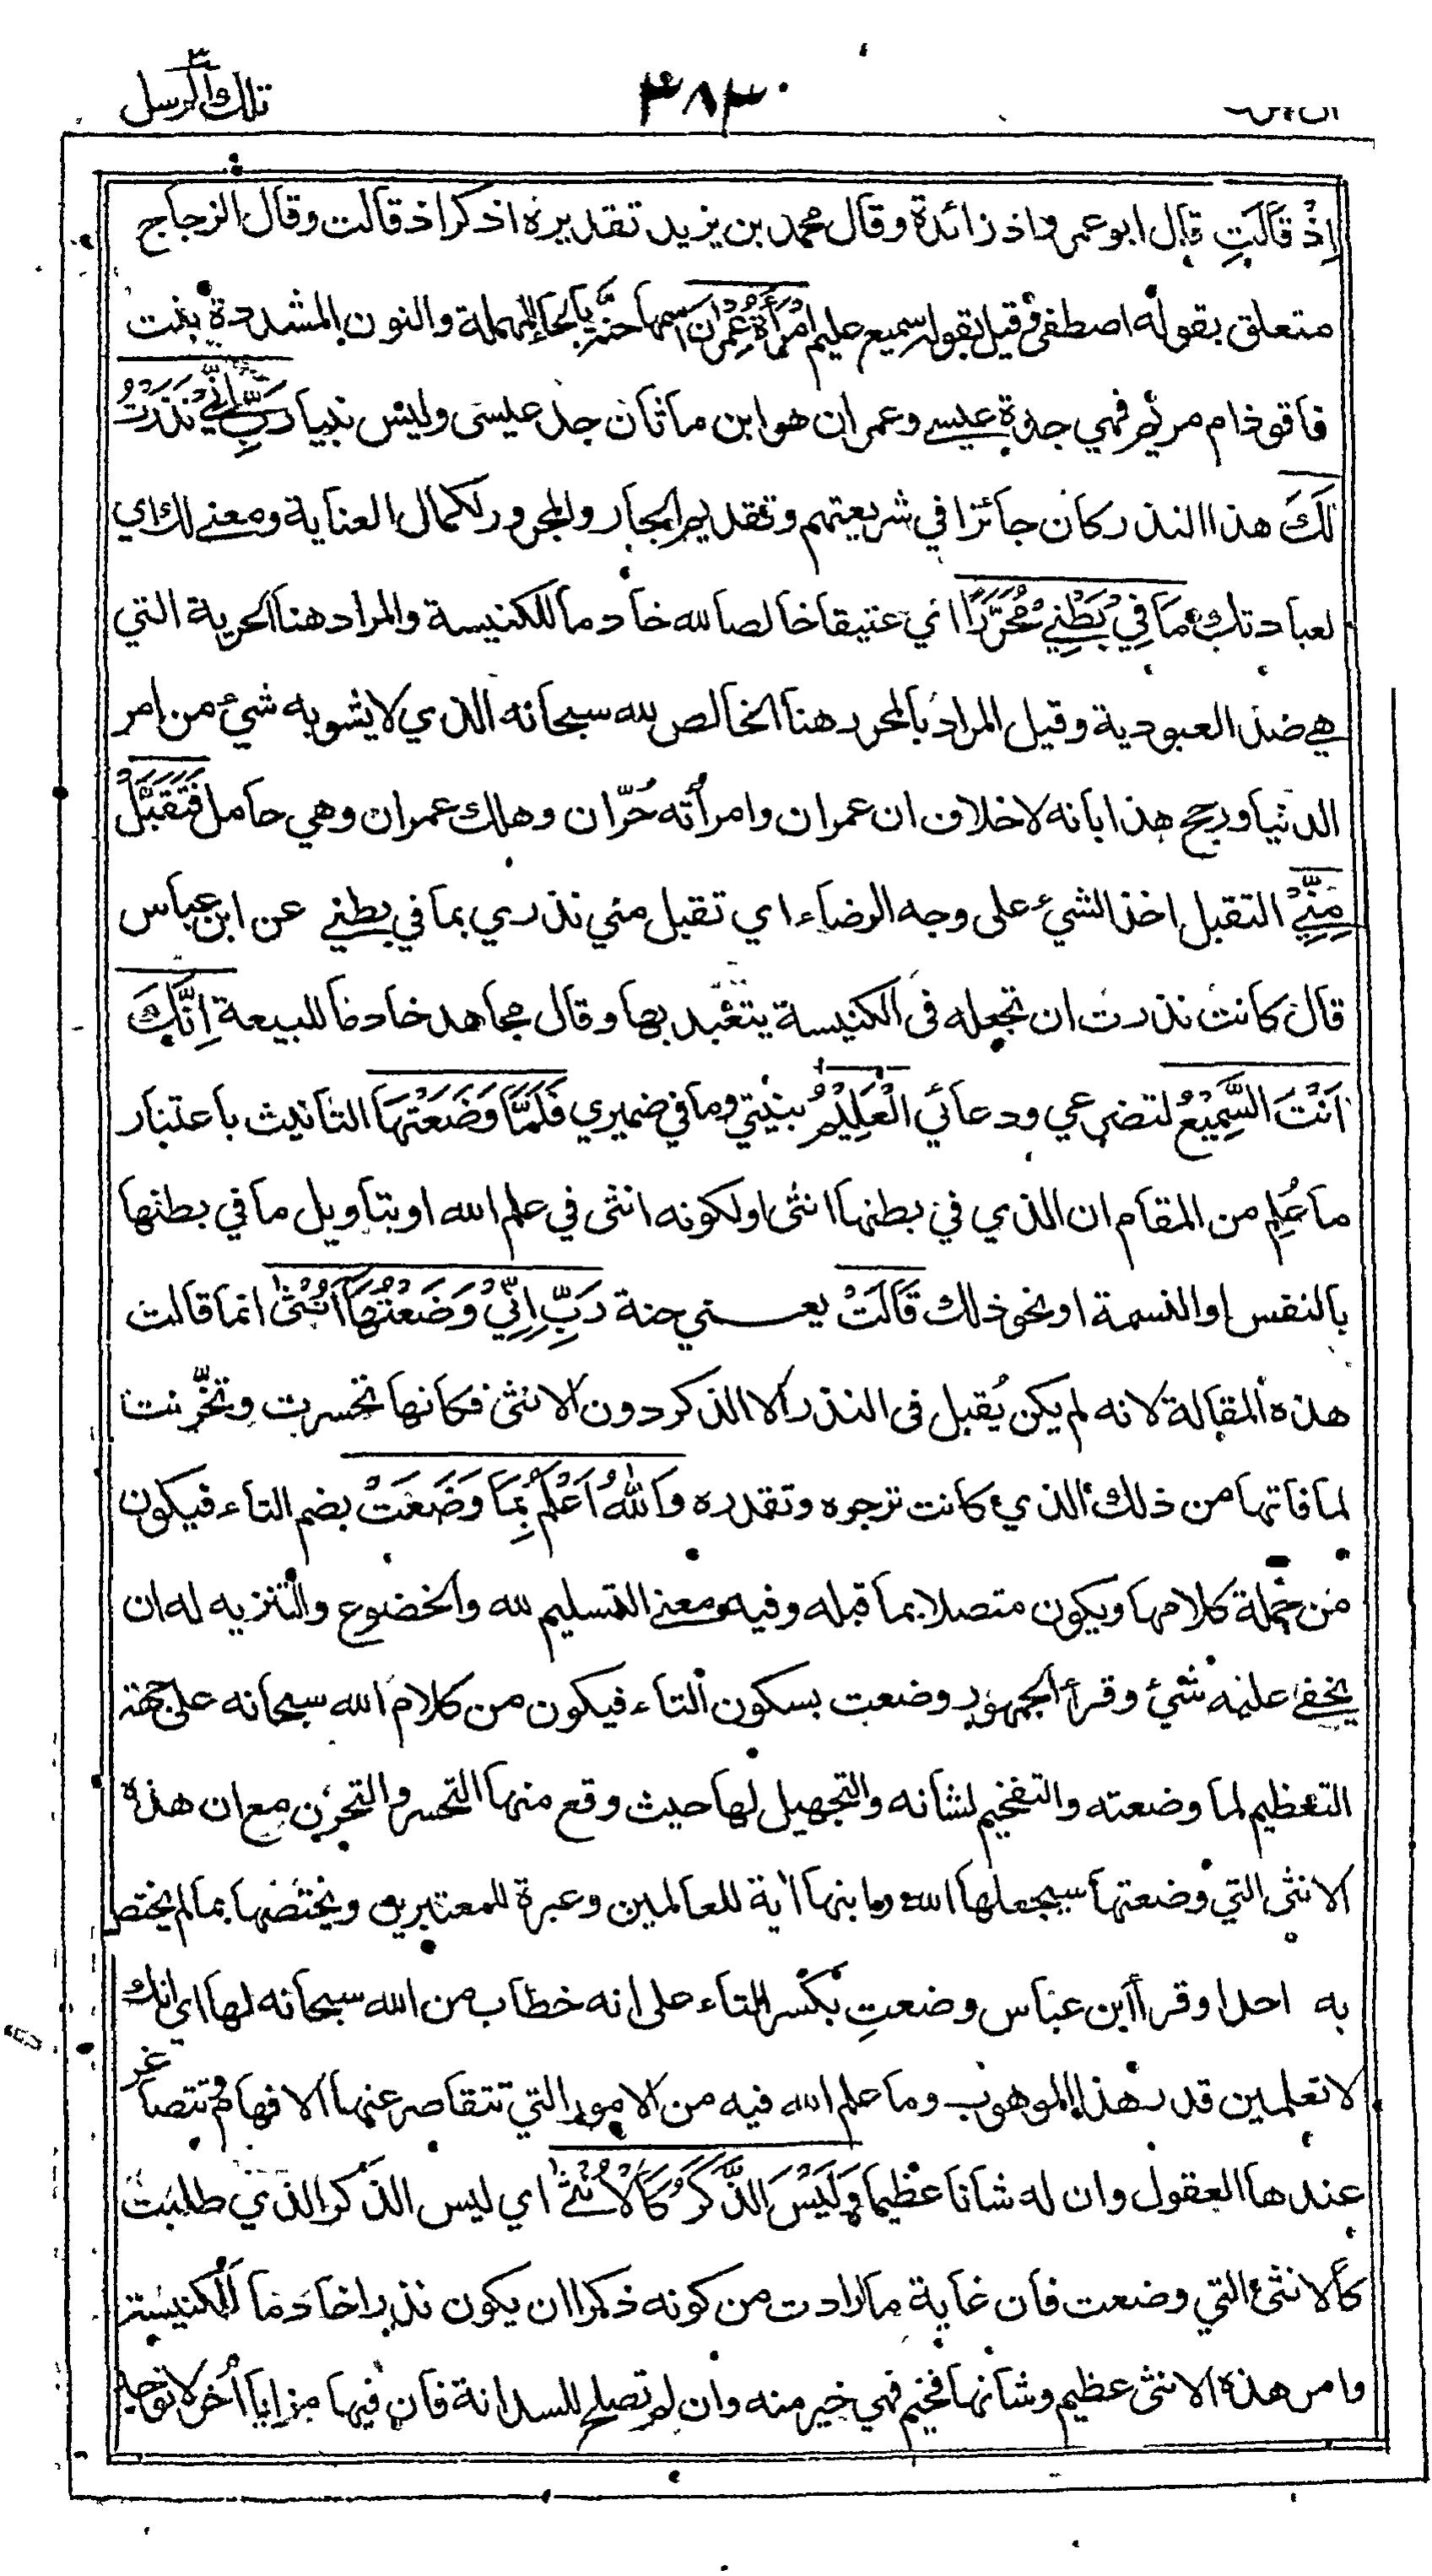 تلك الرسل ٣
٣٨٣
اِذْ قَالَتِ قال ابو عمرو اذ زائدة وقال محمد بن يزيد تقديره اذكر اذ قالت وقال الزجاج
متعلق بقوله اصطفى وقيل بقوله سميع عليم امْرَأَةُ عِمْرَانَ اسمها حنة بالحاء المهملة والنون المشددة بنت
فاقوذ ام مريم فهي جدة عيسى وعمران هو ابن ماثان جد عيسى وليس نبيا رَبِّ اِنِّيْ نَذَرْتُ
لَكَ هذا النذر كان جائزا في شريعتهم وتقديم الجار والمجرور لكمال العناية ومعنى لك اي
لعبادتك مَا فِيْ بَطْنِيْ مُحَرَّرًا اي عتيقا خالصا لله خادما للكنيسة والمراد هنا الحرية التي
هي ضد العبودية وقيل المراد بالمحرر هنا الخالص لله سبحانه الذي لا يشوبه شيء من امر
الدنيا ورجح هذا بانه لا خلاف ان عمران وامرأته حُرّان وهلك عمران وهي حامل فَتَقَبَّلْ
مِنِّيْ التقبل اخذ الشيء على وجه الرضاء اي تقبل مني نذري بما في بطني عن ابن عباس
قال كانت نذرت ان تجعله فى الكنيسة يتعبد بها وقال مجاهد خادما للبيعة اِنَّكَ
اَنْتَ السَّمِيْعُ لتضرعي ودعائي الْعَلِيْمُ بنيتي وما في ضميري فَلَمَّا وَضَعَتْهَا التانيث باعتبار
ما عُلِم من المقام ان الذي في بطنها انثى او لكونه انثى في علم الله او بتاويل ما في بطنها
بالنفس او النسمة او نحو ذلك قَالَتْ يعني حنة رَبِّ اِنِّيْ وَضَعْتُهَا اُنْثٰى انما قالت
هذه المقالة لانه لم يكن يُقبل فى النذر الا الذكر دون الانثى فكانها تحسرت وتحزّنت
لما فاتها من ذلك الذي كانت ترجوه وتقدره وَاللّٰهُ اَعْلَمُ بِمَا وَضَعَتْ بضم التاء فيكون
من جملة كلامها ويكون متصلا بما قبله وفيه ومعنى التسليم لله والخضوع والتنزيه له ان
يخفى عليه شيء وقرأ الجمهور وضعت بسكون التاء فيكون من كلام الله سبحانه على جهة
التعظيم لما وضعته والتفخيم لشانه والتجهيل لها حيث وقع منها التحسر والتحزن مع ان هذه
الانثى التي وضعتها سيجعلها الله وابنها اٰية للعالمين وعبرة للمعتبرين ويختصها بما لم يختص
به احدا وقرأ ابن عباس وضعتِ بكسر التاء على انه خطاب من الله سبحانه لها اي انك
لا تعلمين قدر هذا الموهوب وما علم الله فيه من الامور التي تتقاصر عنها الافهام وتتصاغر
عندها العقول وان له شانا عظيما وَلَيْسَ الذَّكَرُ كَالْاُنْثٰى اي ليس الذكر الذي طلبت
كالانثى التي وضعت فان غاية ما ارادت من كونه ذكرا ان يكون نذرا خادما للكنيسة
وامر هذه الانثى عظيم وشانها فخيم فهي خير منه وان لم تصلح للسدانة فان فيها مزايا اُخر لا توجد